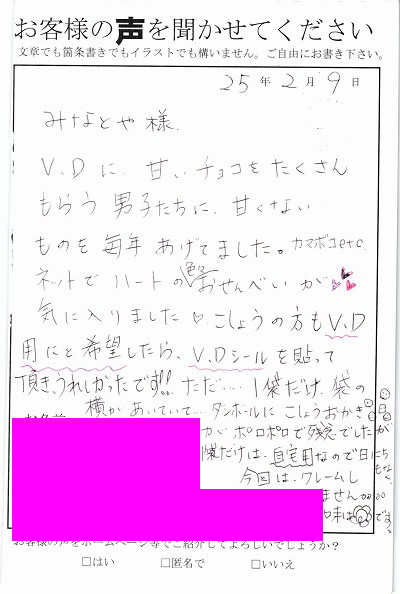 お客様の声を聞かせてください
文章でも箇条書きでもイラストでも構いません。ご自由にお書き下さい。
25年2月9日
みなとや様.
V.Dに、甘いチョコをたくさん
もらう男子たちに、甘くない
ものを毎年あげてました。カマボコetc.
ネットでハートのおせんべいが
気に入りました♡.こしょうの方もV.D
用にと希望したら、V.Dシールを貼って
頂き、うれしかったです!!ただ…. 1袋だけ、袋の
横があいていて…ダンボールにこしょうおかき
がボロボロで残念でしたが
袋だけは、自宅用なので日にち
もなく、
今回は、クレームし
ません
味は です。
お客様の声をホームページ等でご紹介してよろしいでしょうか？
□はい □匿名で □いいえ